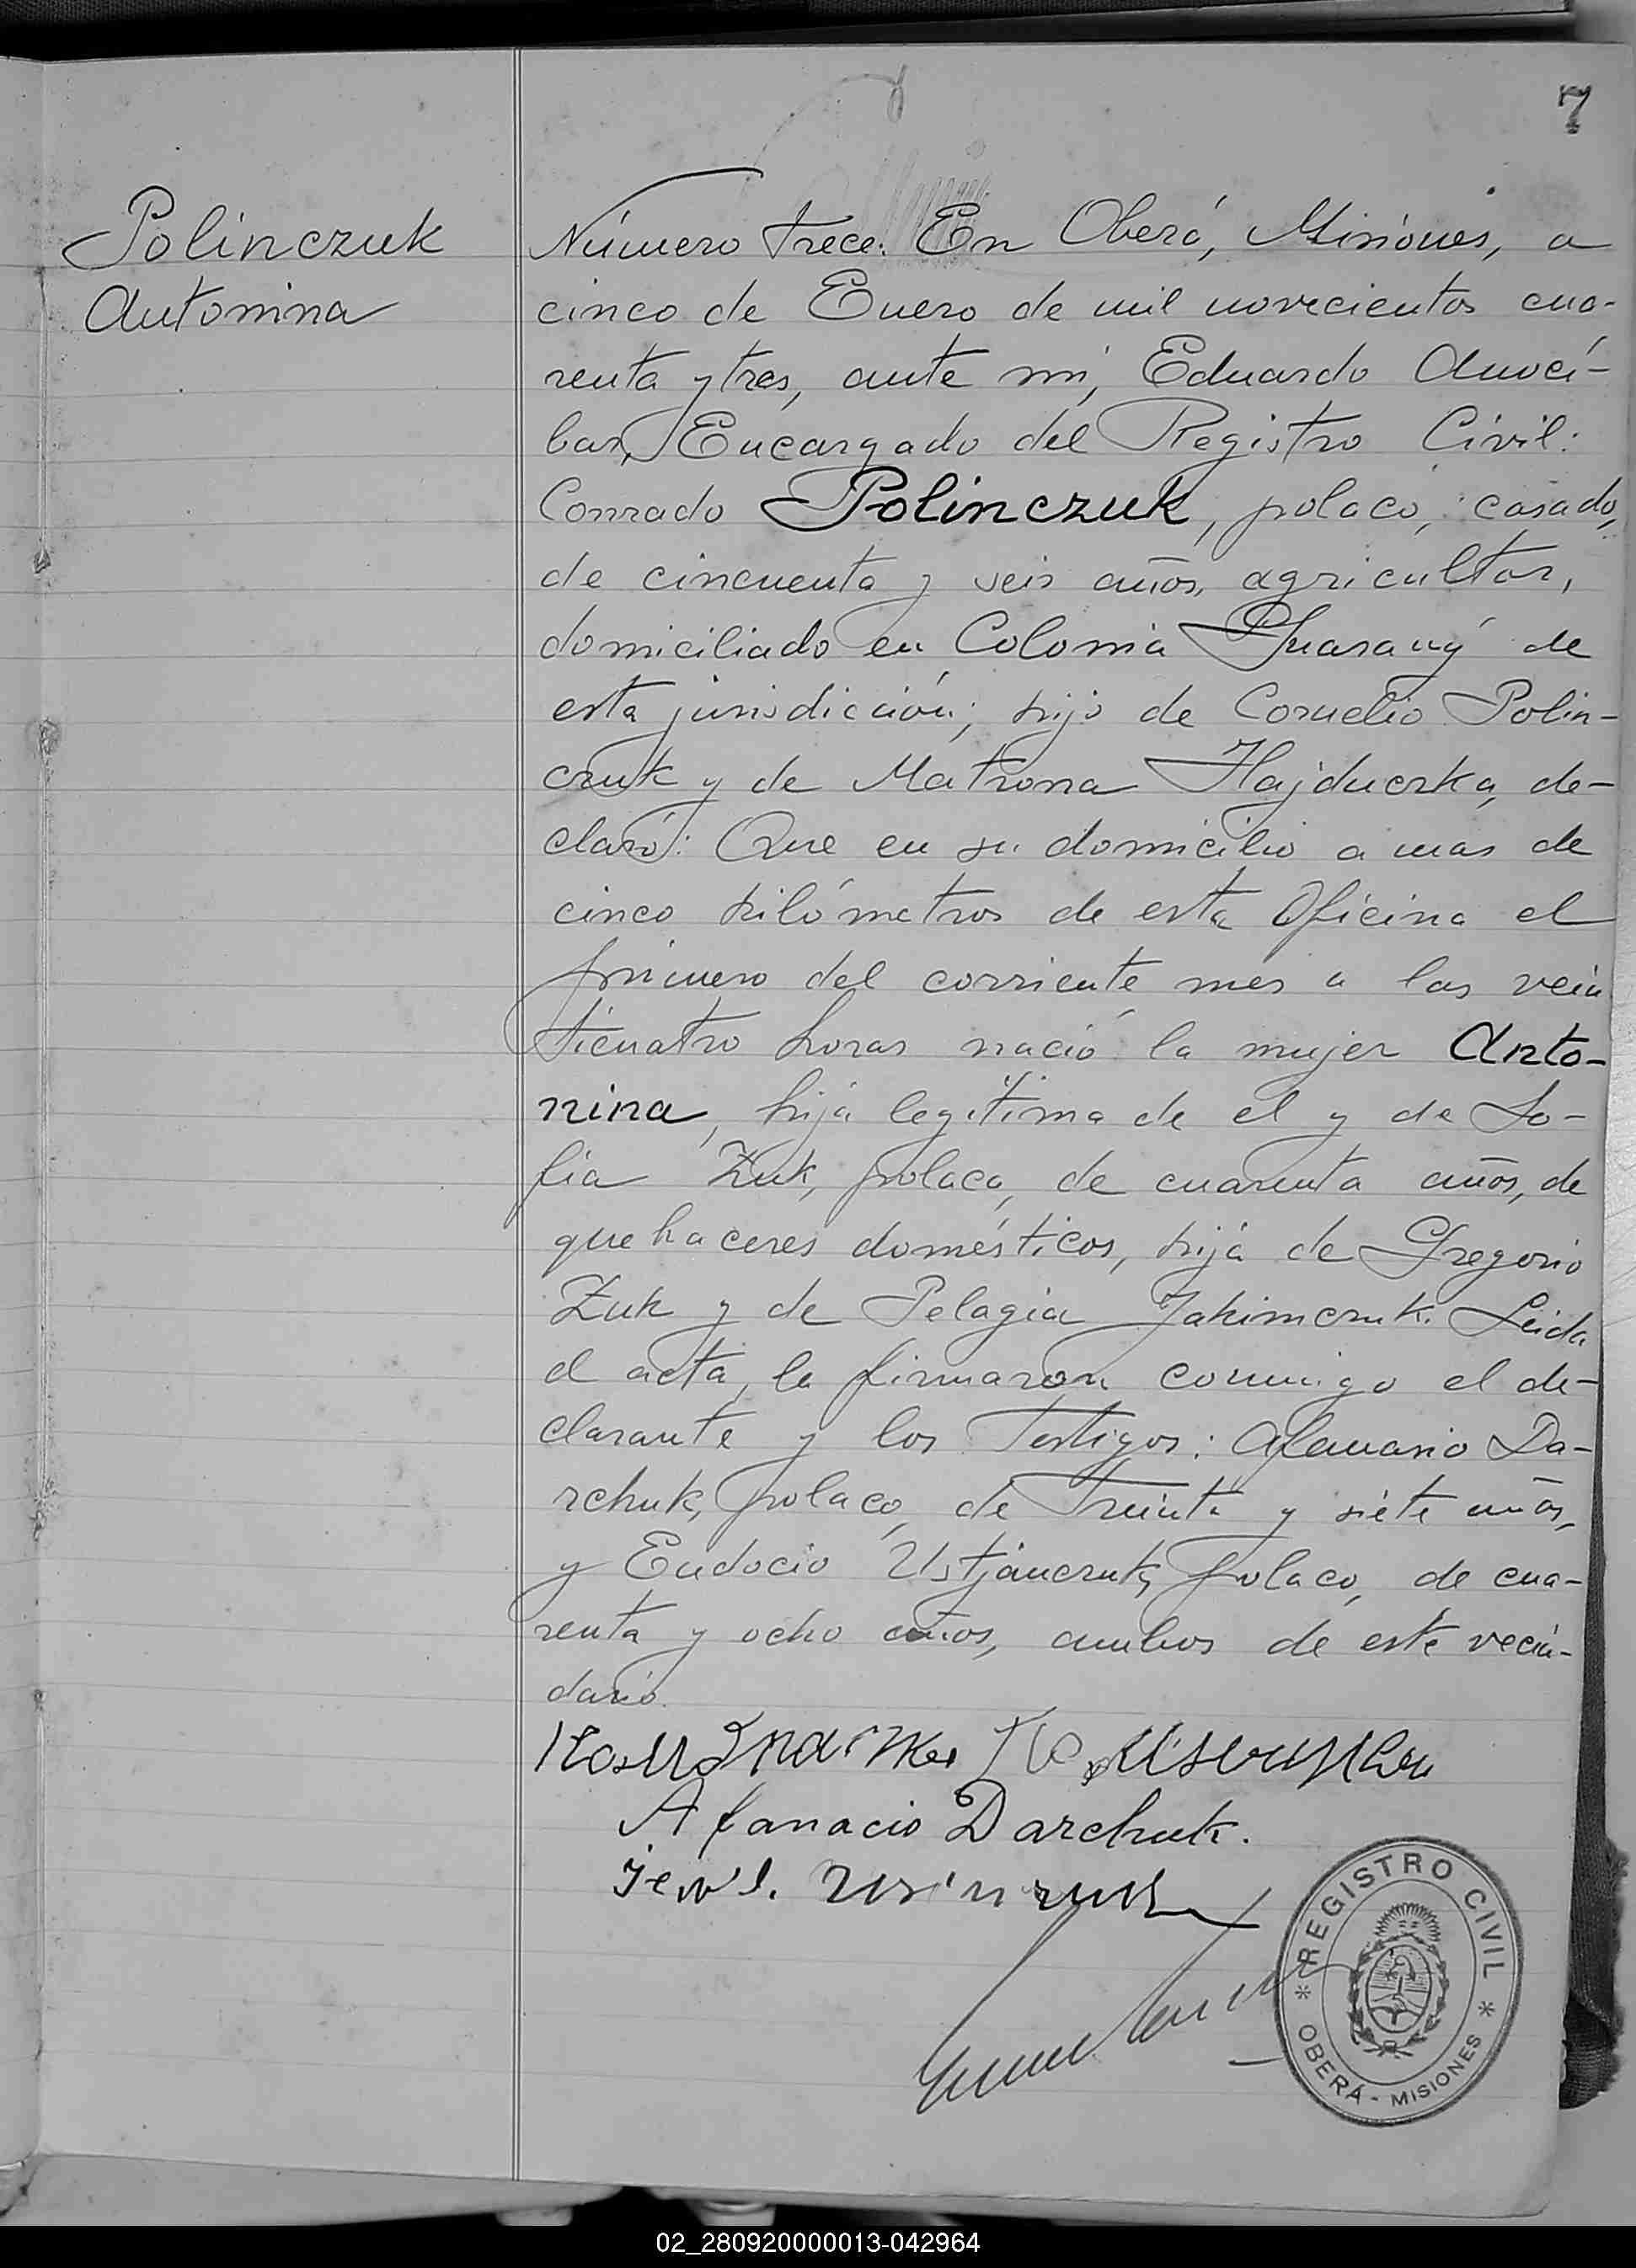 7
Polinczuk
Antonina
Número trece. En Oberá, Misiones, a
cinco de Enero de mil novecientos cua-
renta y tres, ante mi, Eduardo Anocí-
bar, Encargado del Registro Civil:
Conrado Polinczuk, polaco, casado,
de cincuenta y seis años, agricultor,
domiciliado en Colonia Guarany de
esta jurisdicción; hijo de Cornelio Polin-
czuk y de Matrona Hajduczka, de-
claró: Que en su domicilio a mas de
cinco kilómetros de esta Oficina el
primero del corriente mes a las vein
ticuatro horas nació la mujer Anto-
nina, hija legítima de el y de So-
fia Zuk, polaca, de cuarenta años, de
quehaceres domésticos, hija de Gregorio
Zuk y de Pelagia Jakimczuk. Leida
el acta, la firmaron conmigo el de-
clarante y los Testigos: Afanasio Da-
rchuk, polaco, de Treinta y siete años,
y Eudocio Ustjanczuk, polaco, de cua-
renta y ocho años, ambos de este vecin-
dario.
Afanacio Darchuk.
REGISTRO CIVIL
OBERÁ - MISIONES
02_280920000013-042964